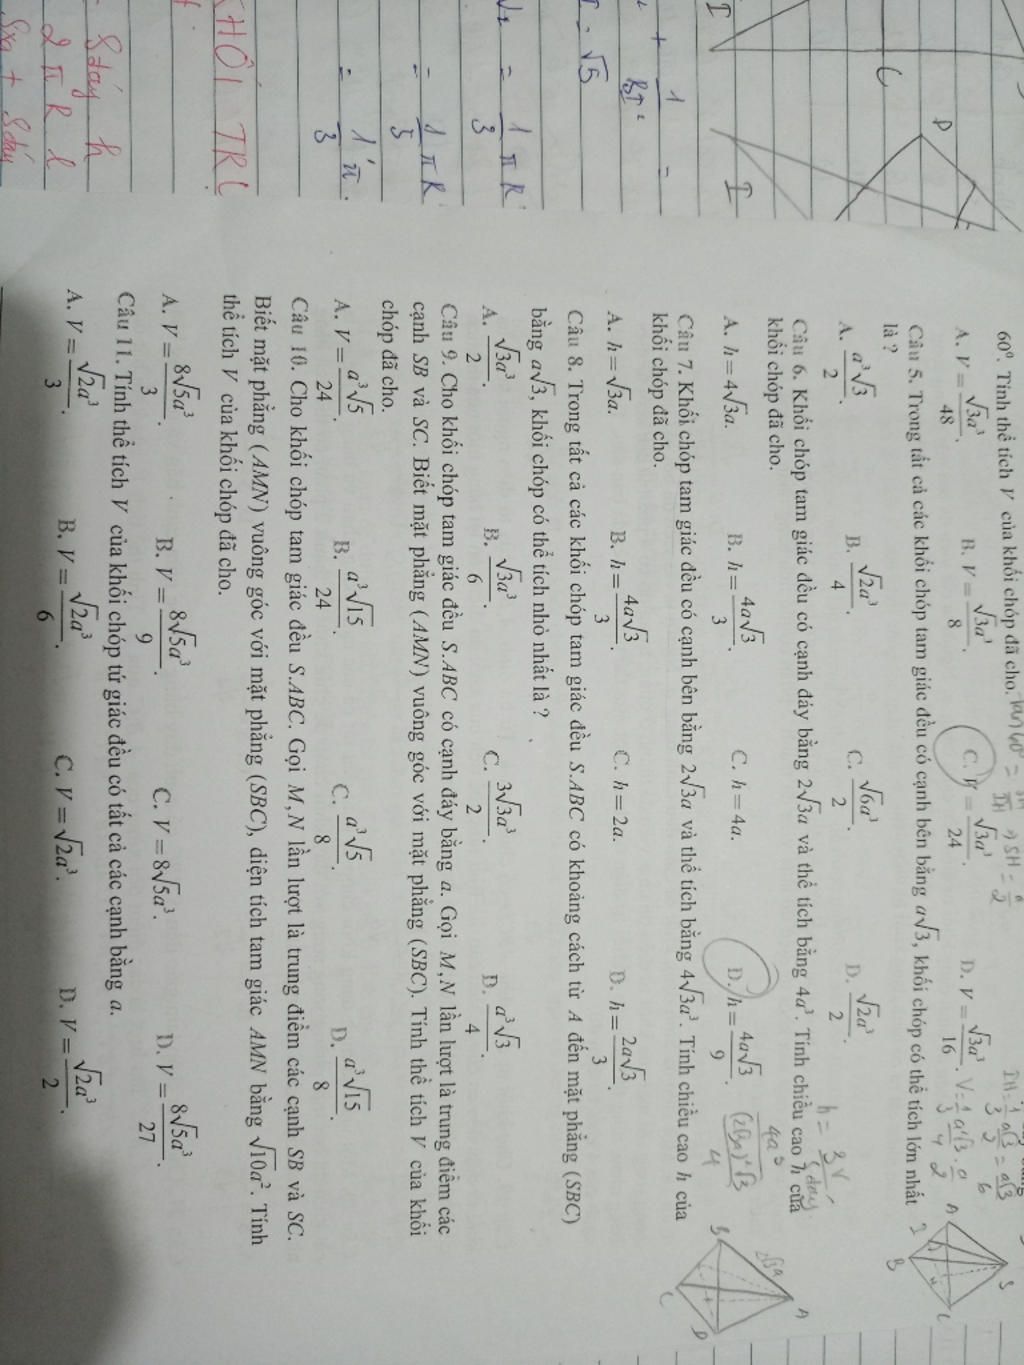 60°. Tính thể tích V của khối chóp đã cho.
A. V = √3a³/48. B. V = √3a³/8. C. V = √3a³/24. D. V = √3a³/16.
Câu 5. Trong tất cả các khối chóp tam giác đều có cạnh bên bằng a√3, khối chóp có thể tích lớn nhất
là ?
A. a³√3/2. B. √2a³/4. C. √6a³/2. D. √2a³/2.
Câu 6. Khối chóp tam giác đều có cạnh đáy bằng 2√3a và thể tích bằng 4a³. Tính chiều cao h của
khối chóp đã cho.
A. h = 4√3a. B. h = 4a√3/3. C. h = 4a. D. h = 4a√3/9.
Câu 7. Khối chóp tam giác đều có cạnh bên bằng 2√3a và thể tích bằng 4√3a³. Tính chiều cao h của
khối chóp đã cho.
A. h = √3a. B. h = 4a√3/3. C. h = 2a. D. h = 2a√3/3.
Câu 8. Trong tất cả các khối chóp tam giác đều S.ABC có khoảng cách từ A đến mặt phẳng (SBC)
bằng a√3, khối chóp có thể tích nhỏ nhất là ?
A. √3a³/2. B. √3a³/6. C. 3√3a³/2. D. a³√3/4.
Câu 9. Cho khối chóp tam giác đều S.ABC có cạnh đáy bằng a. Gọi M,N lần lượt là trung điểm các
cạnh SB và SC. Biết mặt phẳng (AMN) vuông góc với mặt phẳng (SBC). Tính thể tích V của khối
chóp đã cho.
A. V = a³√5/24. B. a³√15/24. C. a³√5/8. D. a³√15/8.
Câu 10. Cho khối chóp tam giác đều S.ABC. Gọi M,N lần lượt là trung điểm các cạnh SB và SC.
Biết mặt phẳng (AMN) vuông góc với mặt phẳng (SBC), diện tích tam giác AMN bằng √10a². Tính
thể tích V của khối chóp đã cho.
A. V = 8√5a³/3. B. V = 8√5a³/9. C. V = 8√5a³. D. V = 8√5a³/27.
Câu 11. Tính thể tích V của khối chóp tứ giác đều có tất cả các cạnh bằng a.
A. V = √2a³/3. B. V = √2a³/6. C. V = √2a³. D. V = √2a³/2.
h = 3V/Sđáy
4a³
(2√3a)²√3/4
2√3a
A
B
C
D
S
A
B
I
P
C
I
I
= √5
= 1/3 π R
= 1/3 π R
= 1/3 π.
KHỐI TRỤ
Sđáy h
2 π R l
Sxq + Sđáy